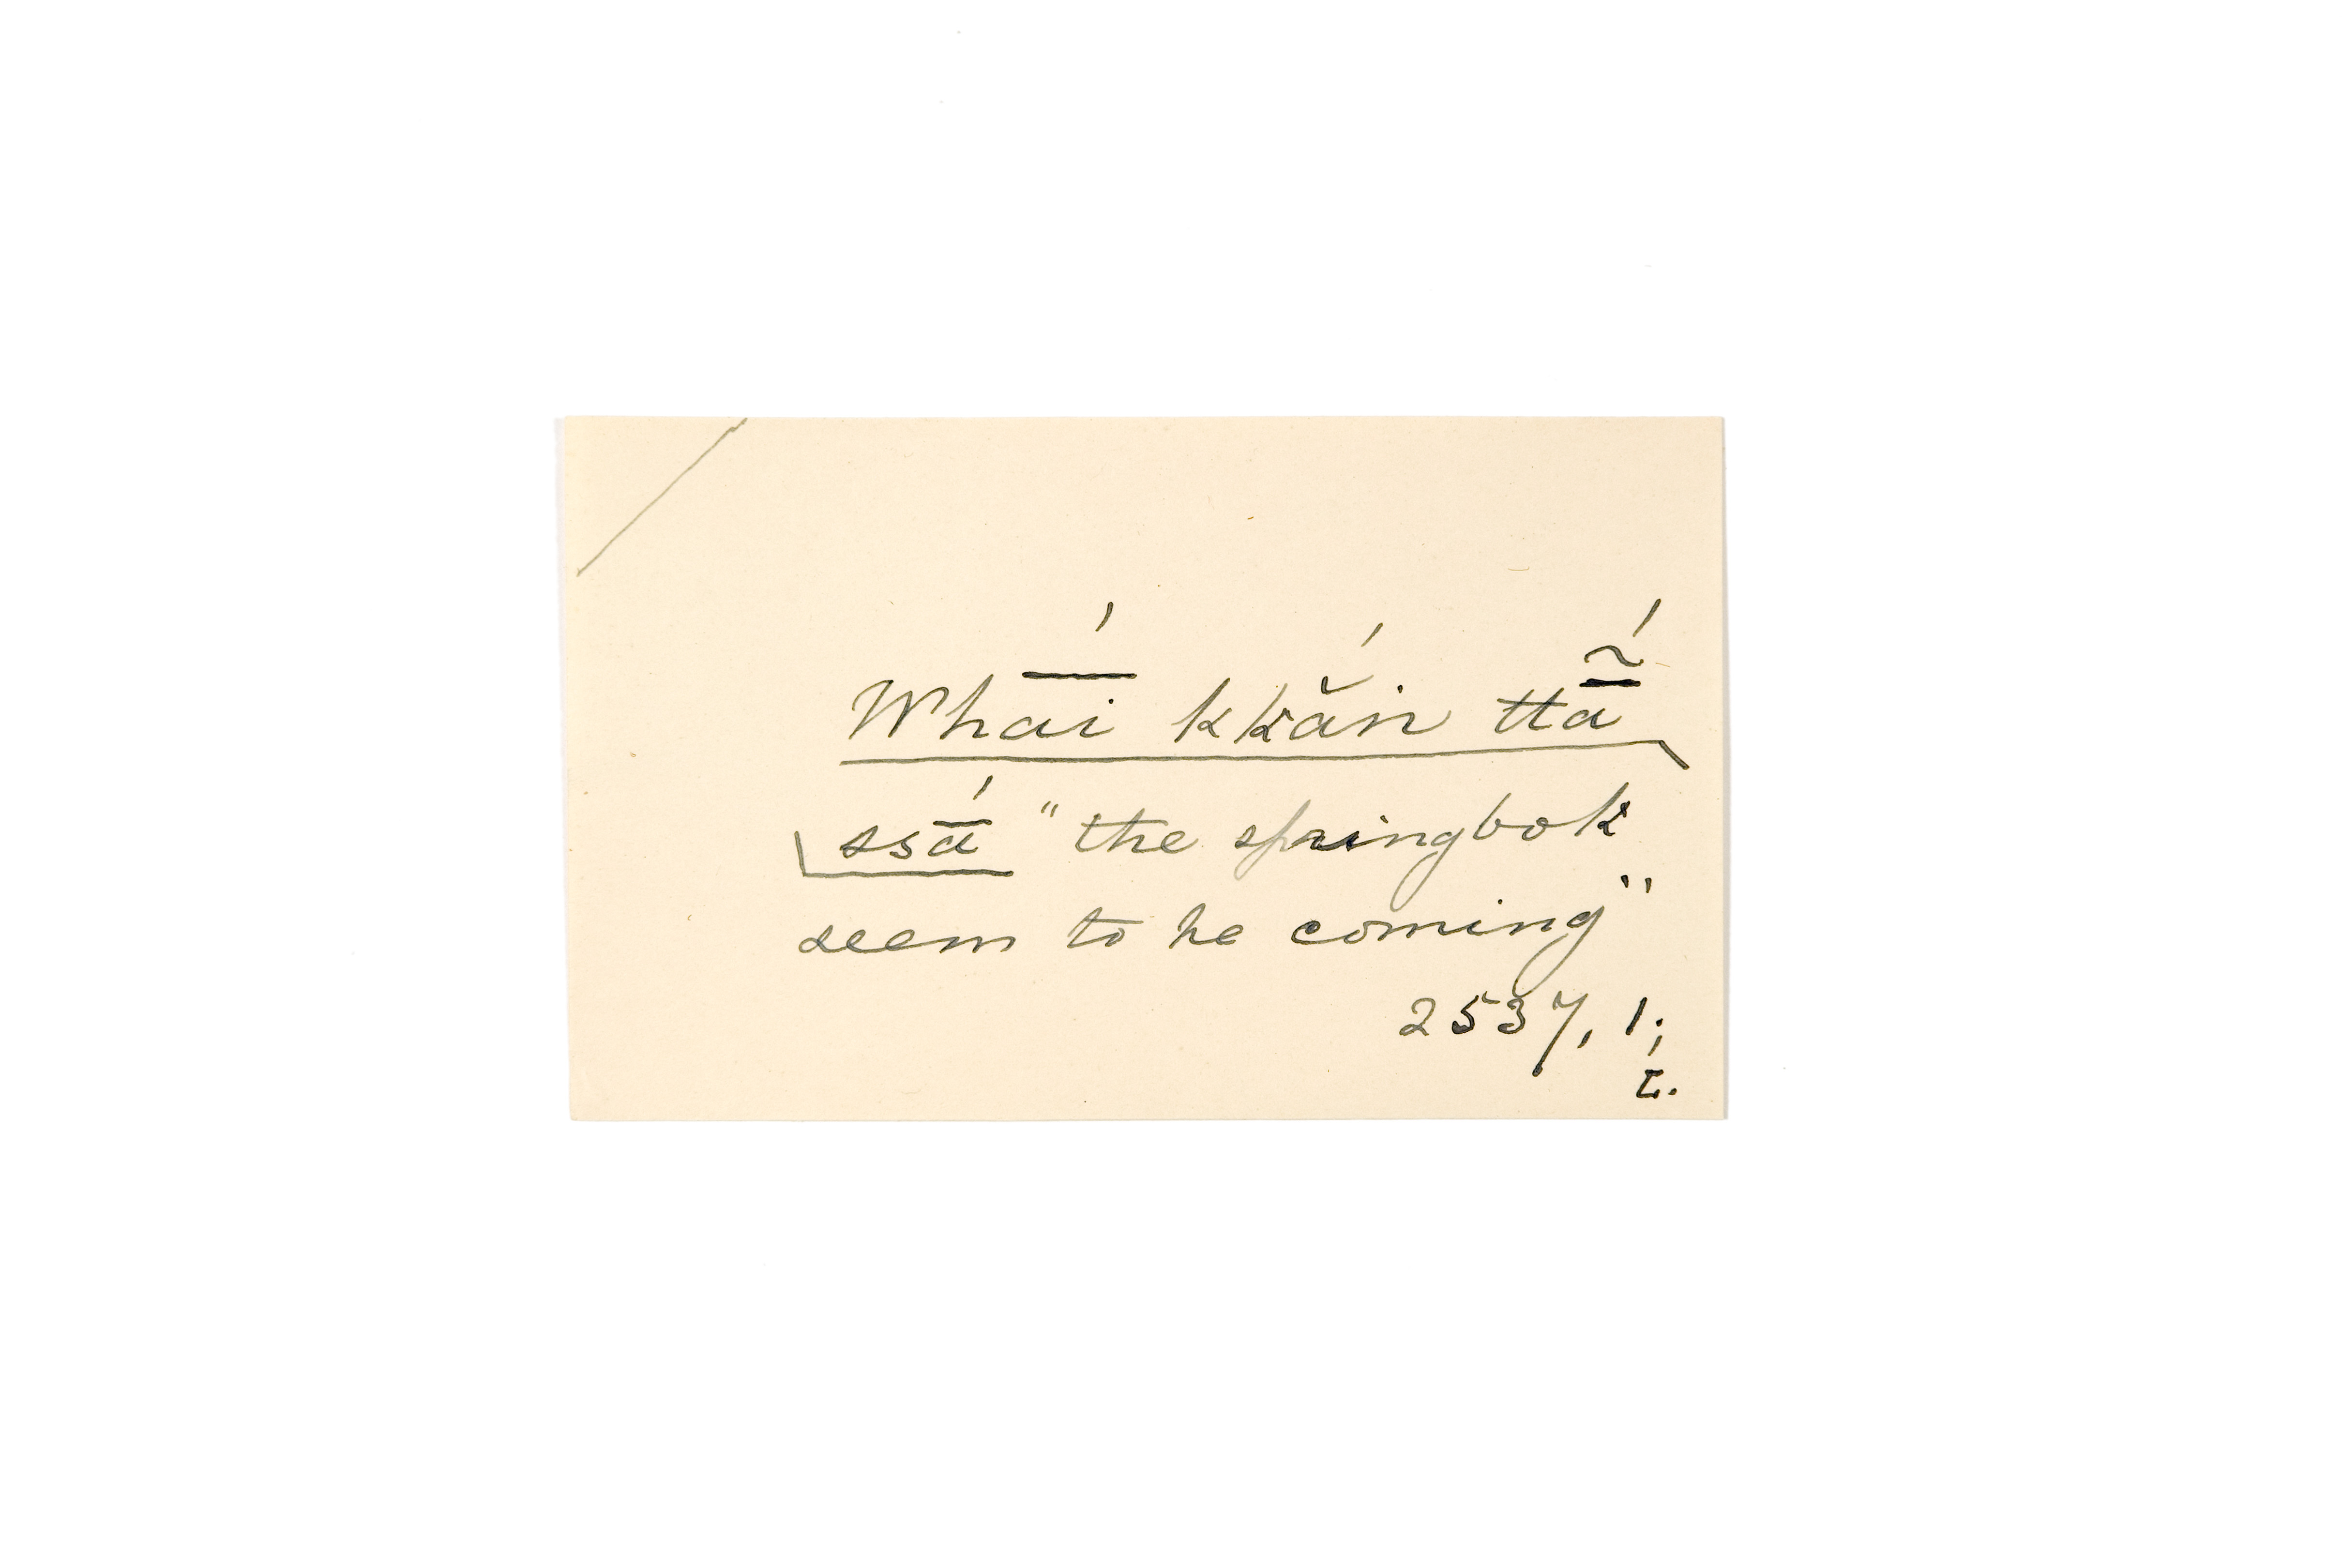 Whā́i kkắn ttā̃́
ssā́ "the springbok
seem to be coming"
2537, 1;
L.